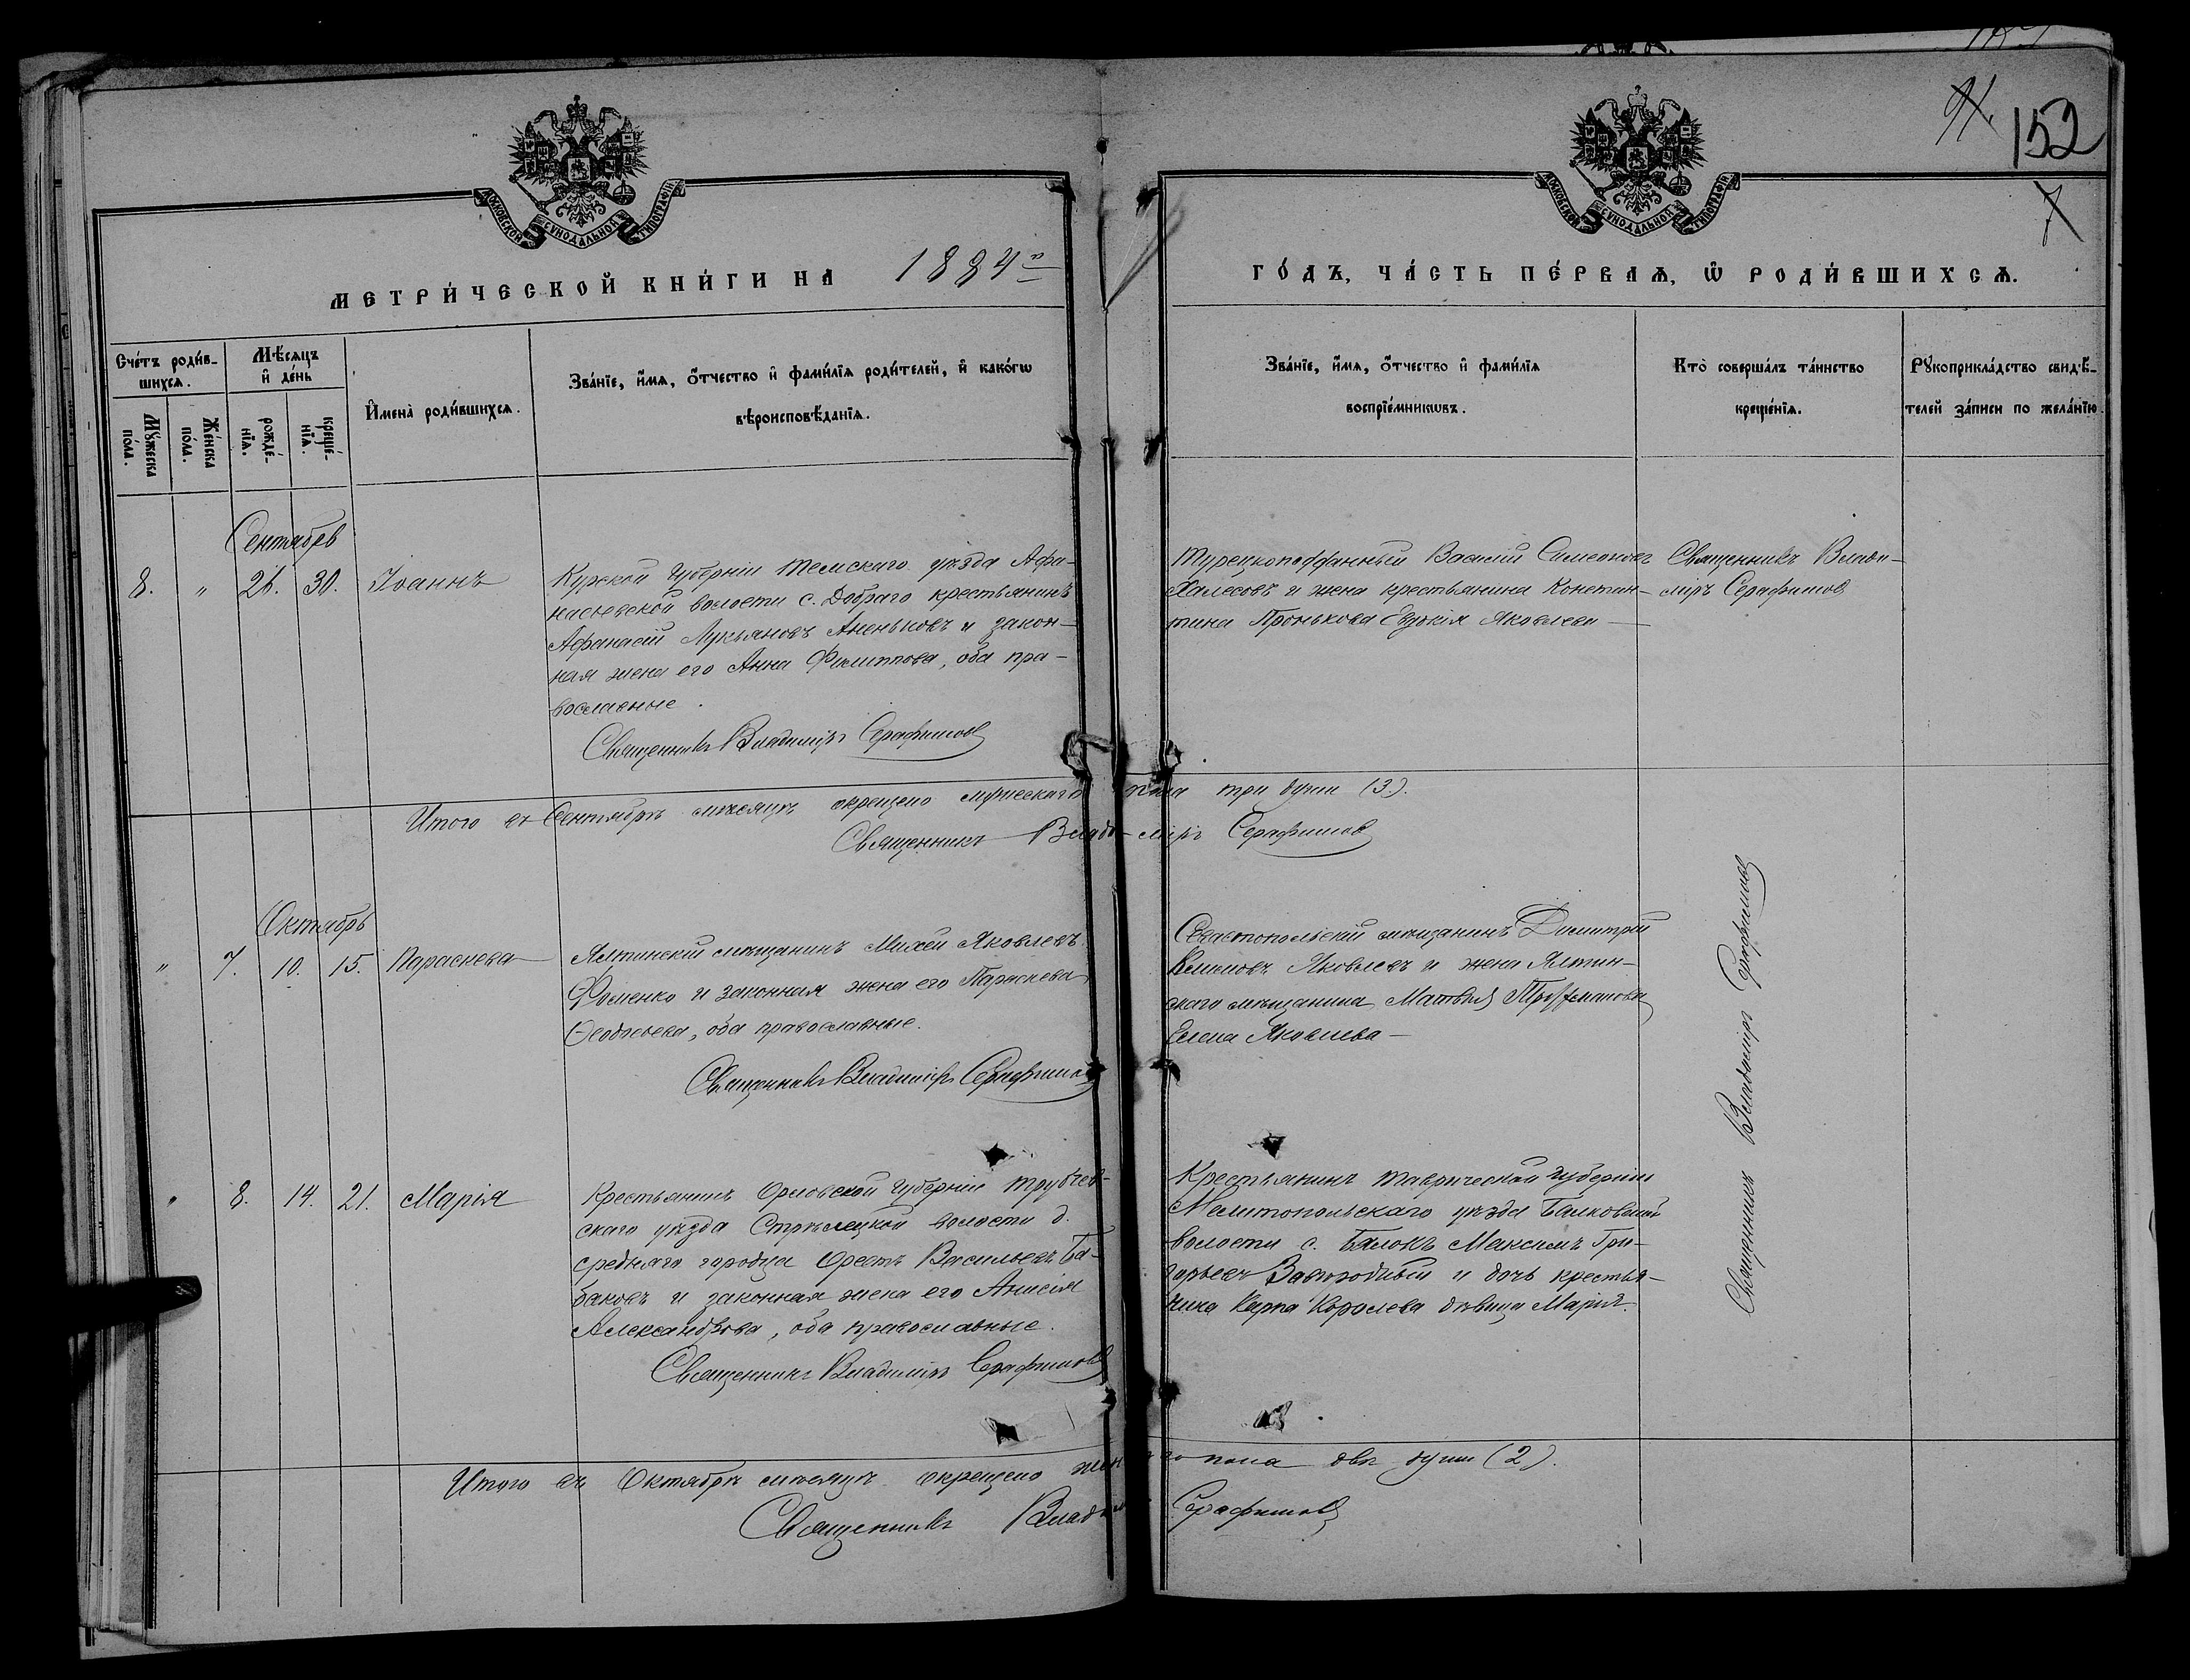 91.
152
7
МОСКОВСКОЙ СѴНОДАЛЬНОЙ ТИПОГРАФІИ
МОСКОВСКОЙ СѴНОДАЛЬНОЙ ТИПОГРАФІИ
МЕТРИ́ЧЕСКОЙ КНИ́ГИ НА 1884 го
ГО́ДЪ, ЧА́СТЬ ПЕ́РВАѦ, Ѿ РОДИ́ВШИХСѦ.
Сче́тъ роди́в-
шихсѧ.
Мꙋ́жеска
по́ла.
Же́нска
по́ла.
Мѣ́сѧцъ
и҆ де́нь
рожде́-
нїѧ.
креще́-
нїѧ.
И҆мена̀ роди́вшихсѧ.
Зва́нїе, и҆́мѧ, ѻ҆́тчество и҆ фами́лїѧ роди́телей, и҆ како́гѡ
вѣроисповѣ́данїѧ.
Зва́нїе, и҆́мѧ, ѻ҆́тчество и҆ фами́лїѧ
воспрїе́мникѡвъ.
Кто̀ соверша́лъ та́инство
креще́нїѧ.
Рꙋкоприкла́дство свидѣ́-
телей за́писи по жела́нїю.
Сентябрь
8. " 26. 30. Іоаннъ
Курской Губерніи Темскаго уѣзда Афа-
насьевской волости с. Добраго крестьянинъ
Афанасій Лукьяновъ Аненьковъ и закон-
ная жена его Анна Филиппова, оба пра-
вославные.
Священникъ Владиміръ Серафимовъ
Турецкоподданный Василій Симеоновъ
Халесовъ и жена крестьянина Констан-
тина Пронькова Евдокія Яковлева —
Священникъ Влади-
міръ Серафимов
Итого въ Сентябрѣ мѣсяцѣ окрещено мужескаго пола три души (3).
Священникъ Владиміръ Серафимов
Октябрь
" 7. 10. 15. Параскева
Ялтинскій мѣщанинъ Михей Яковлевъ
Фоменко и законная жена его Параскева
Ѳеодосьева, оба православные.
Священникъ Владиміръ Серафимов
Севастопольскій мѣщанинъ Димитрій
Климовъ Яковлевъ и жена Ялтин-
скаго мѣщанина Матвѣя
Елена Яковлева —
" 8. 14. 21. Марія
Крестьянинъ Орловской Губерніи Трубчев-
скаго уѣзда Стрѣлецкой волости д.
средняго городца Орестъ Васильевъ Ба-
баковъ и законная жена его Анисія
Александрова, оба православные.
Священникъ Владиміръ Серафимовъ
Крестьянинъ Таврической Губерніи
Мелитопольскаго уѣзда Балковской
волости с. Балокъ Максимъ Гри-
горьевъ Завгородный и дочь крестья-
нина Карпа Королева дѣвица Марія.
Священникъ Владиміръ Серафимовъ
Итого въ Октябрѣ мѣсяцѣ окрещено жен го пола двѣ души (2).
Священникъ Влади Серафимовъ